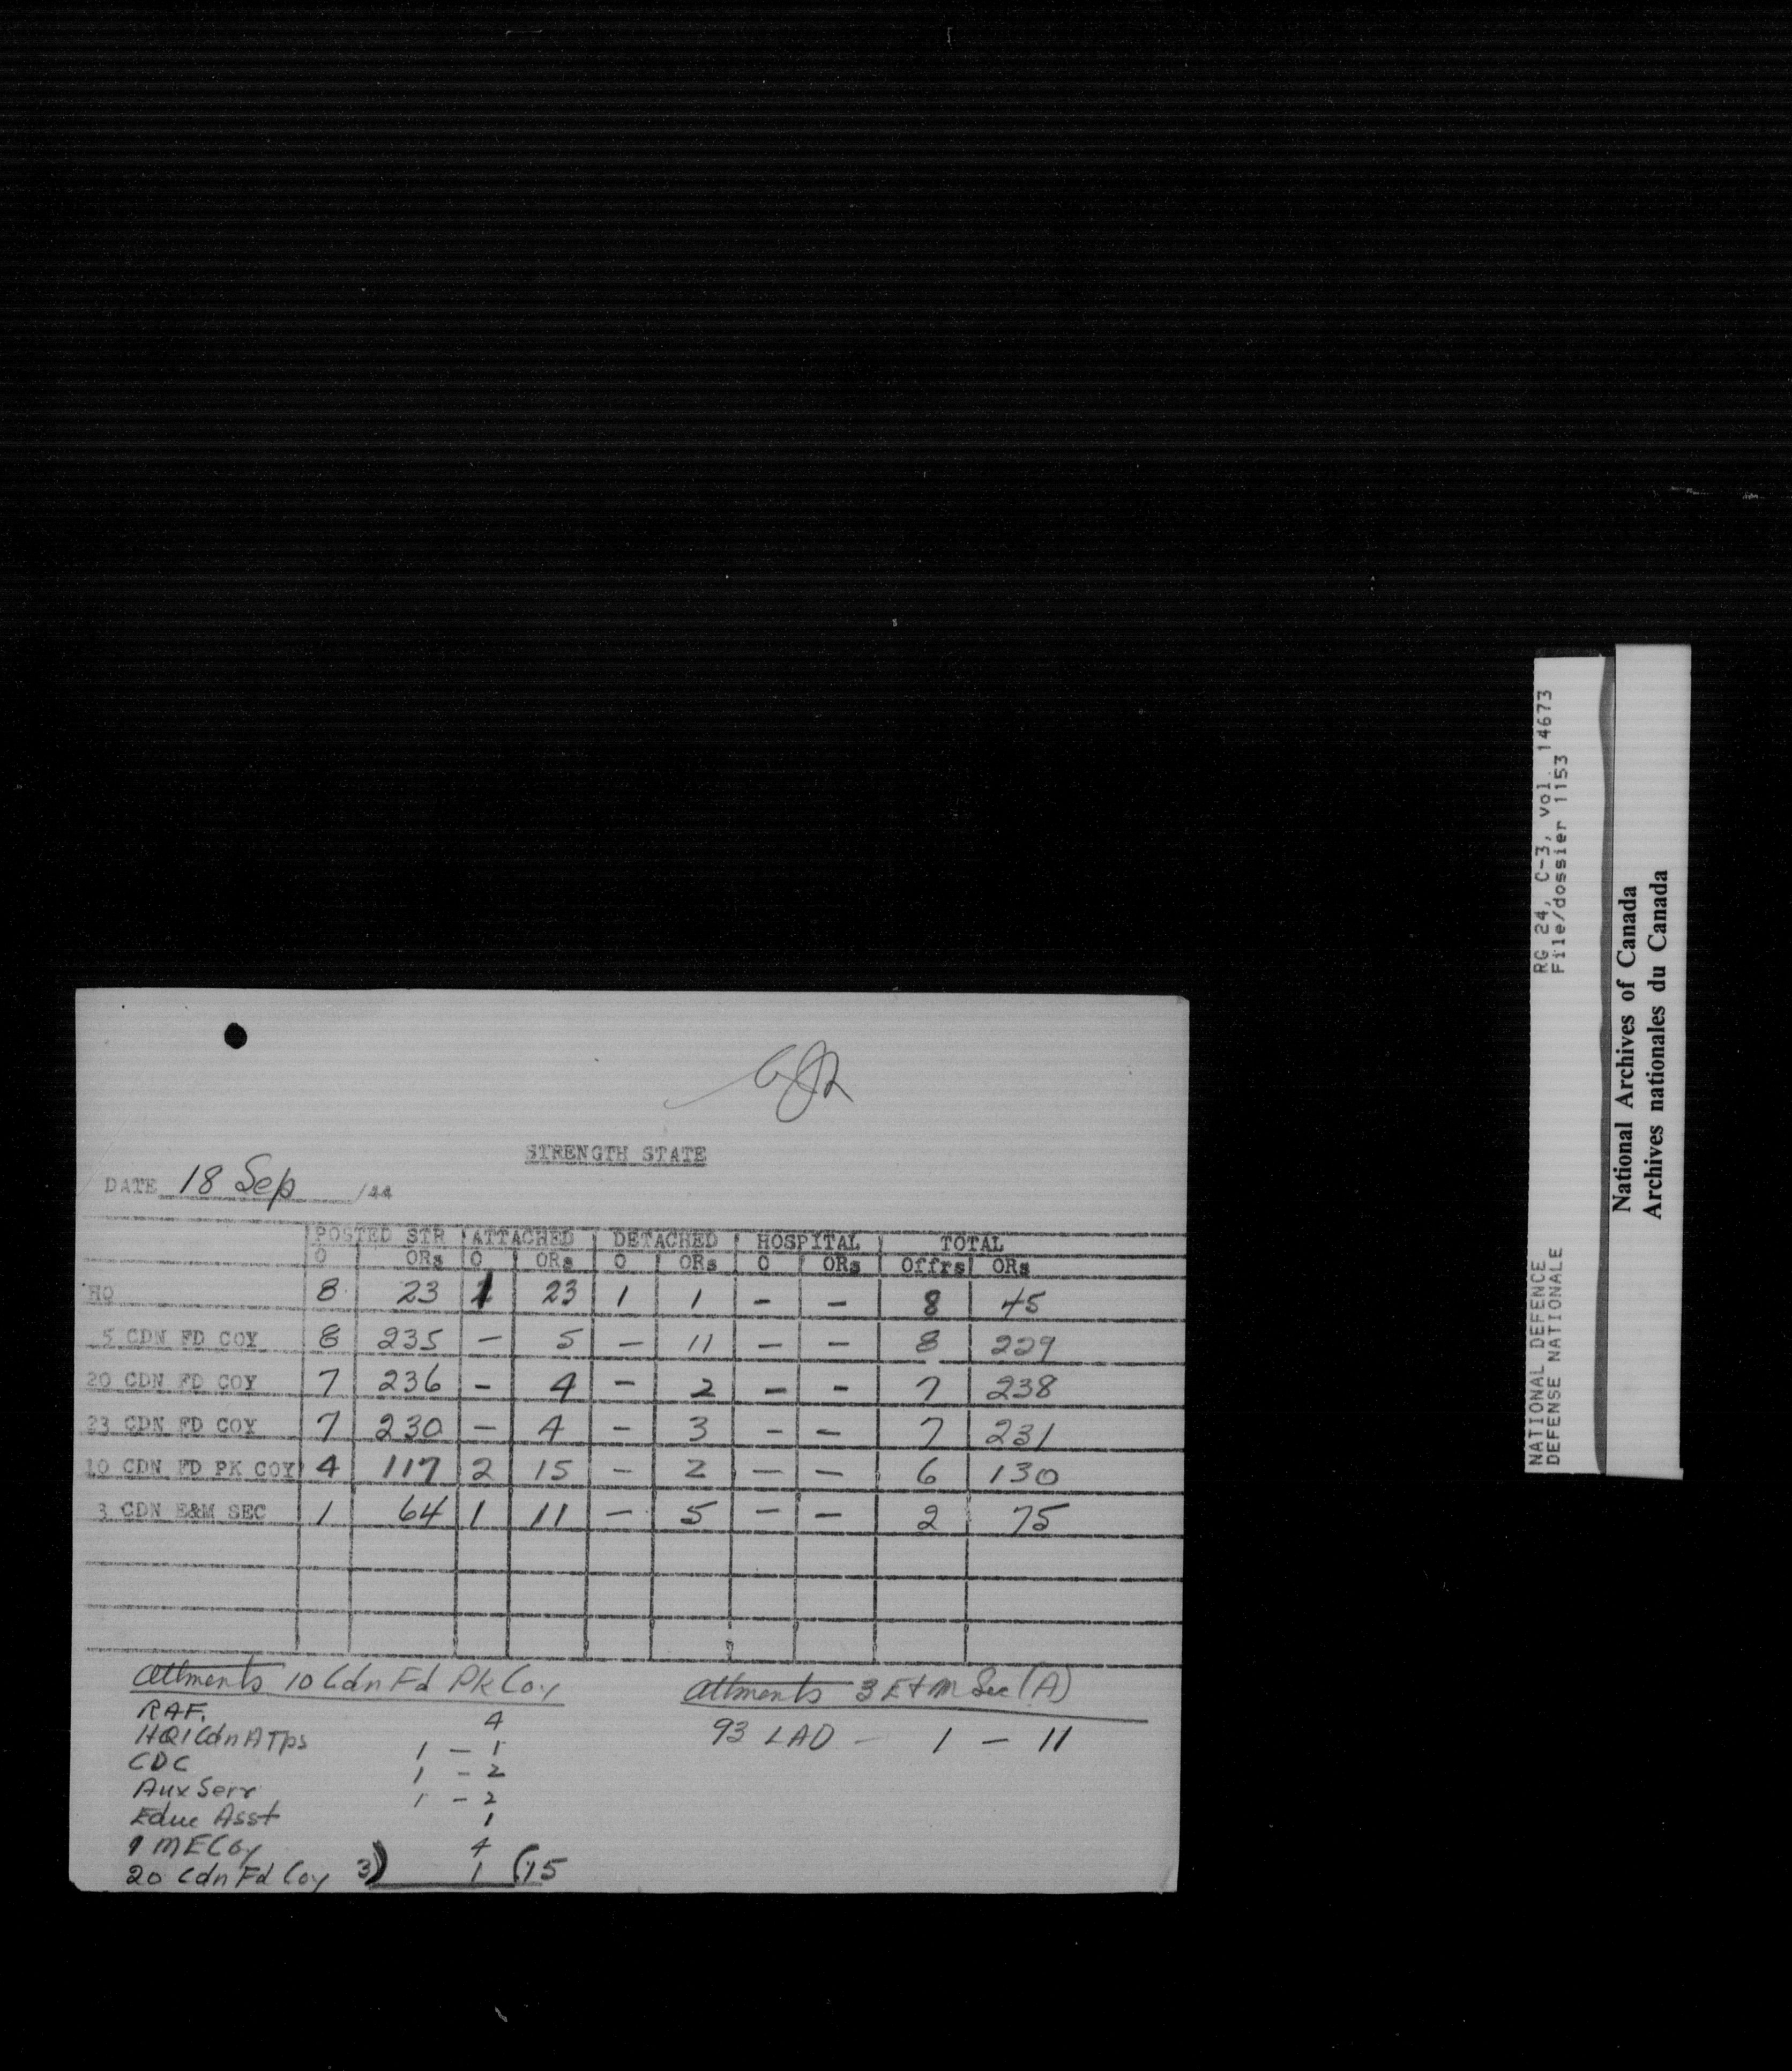 STRENGTH STATE
DATE 18 Sep /44
POSTED STR ATTACHED DETACHED HOSPITAL TOTAL
O ORs O ORs O ORs O ORs Offrs ORs
HQ 8 23 1 23 1 1 - - 8 45
5 CDN FD COY 8 235 - 5 - 11 - - 8 229
20 CDN FD COY 7 236 - 4 - 2 - - 7 238
23 CDN FD COY 7 230 - 4 - 3 - - 7 231
10 CDN FD PK COY 4 117 2 15 - 2 - - 6 130
3 CDN E&M SEC 1 64 1 11 - 5 - - 2 75
Attments 10 Cdn Fd Pk Coy
RAF. 4
HQ1 Cdn A Tps 1 - 1
CDC 1 - 2
Aux Serv 1 - 2
Educ Asst 1
1 M E Coy 4
20 Cdn Fd Coy 3) 1 (15
Attments 3 E+M Sec (A)
93 LAD - 1 - 11
NATIONAL DEFENCE RG 24, C-3, vol. 14673
DEFENSE NATIONALE File/dossier 1153
National Archives of Canada
Archives nationales du Canada